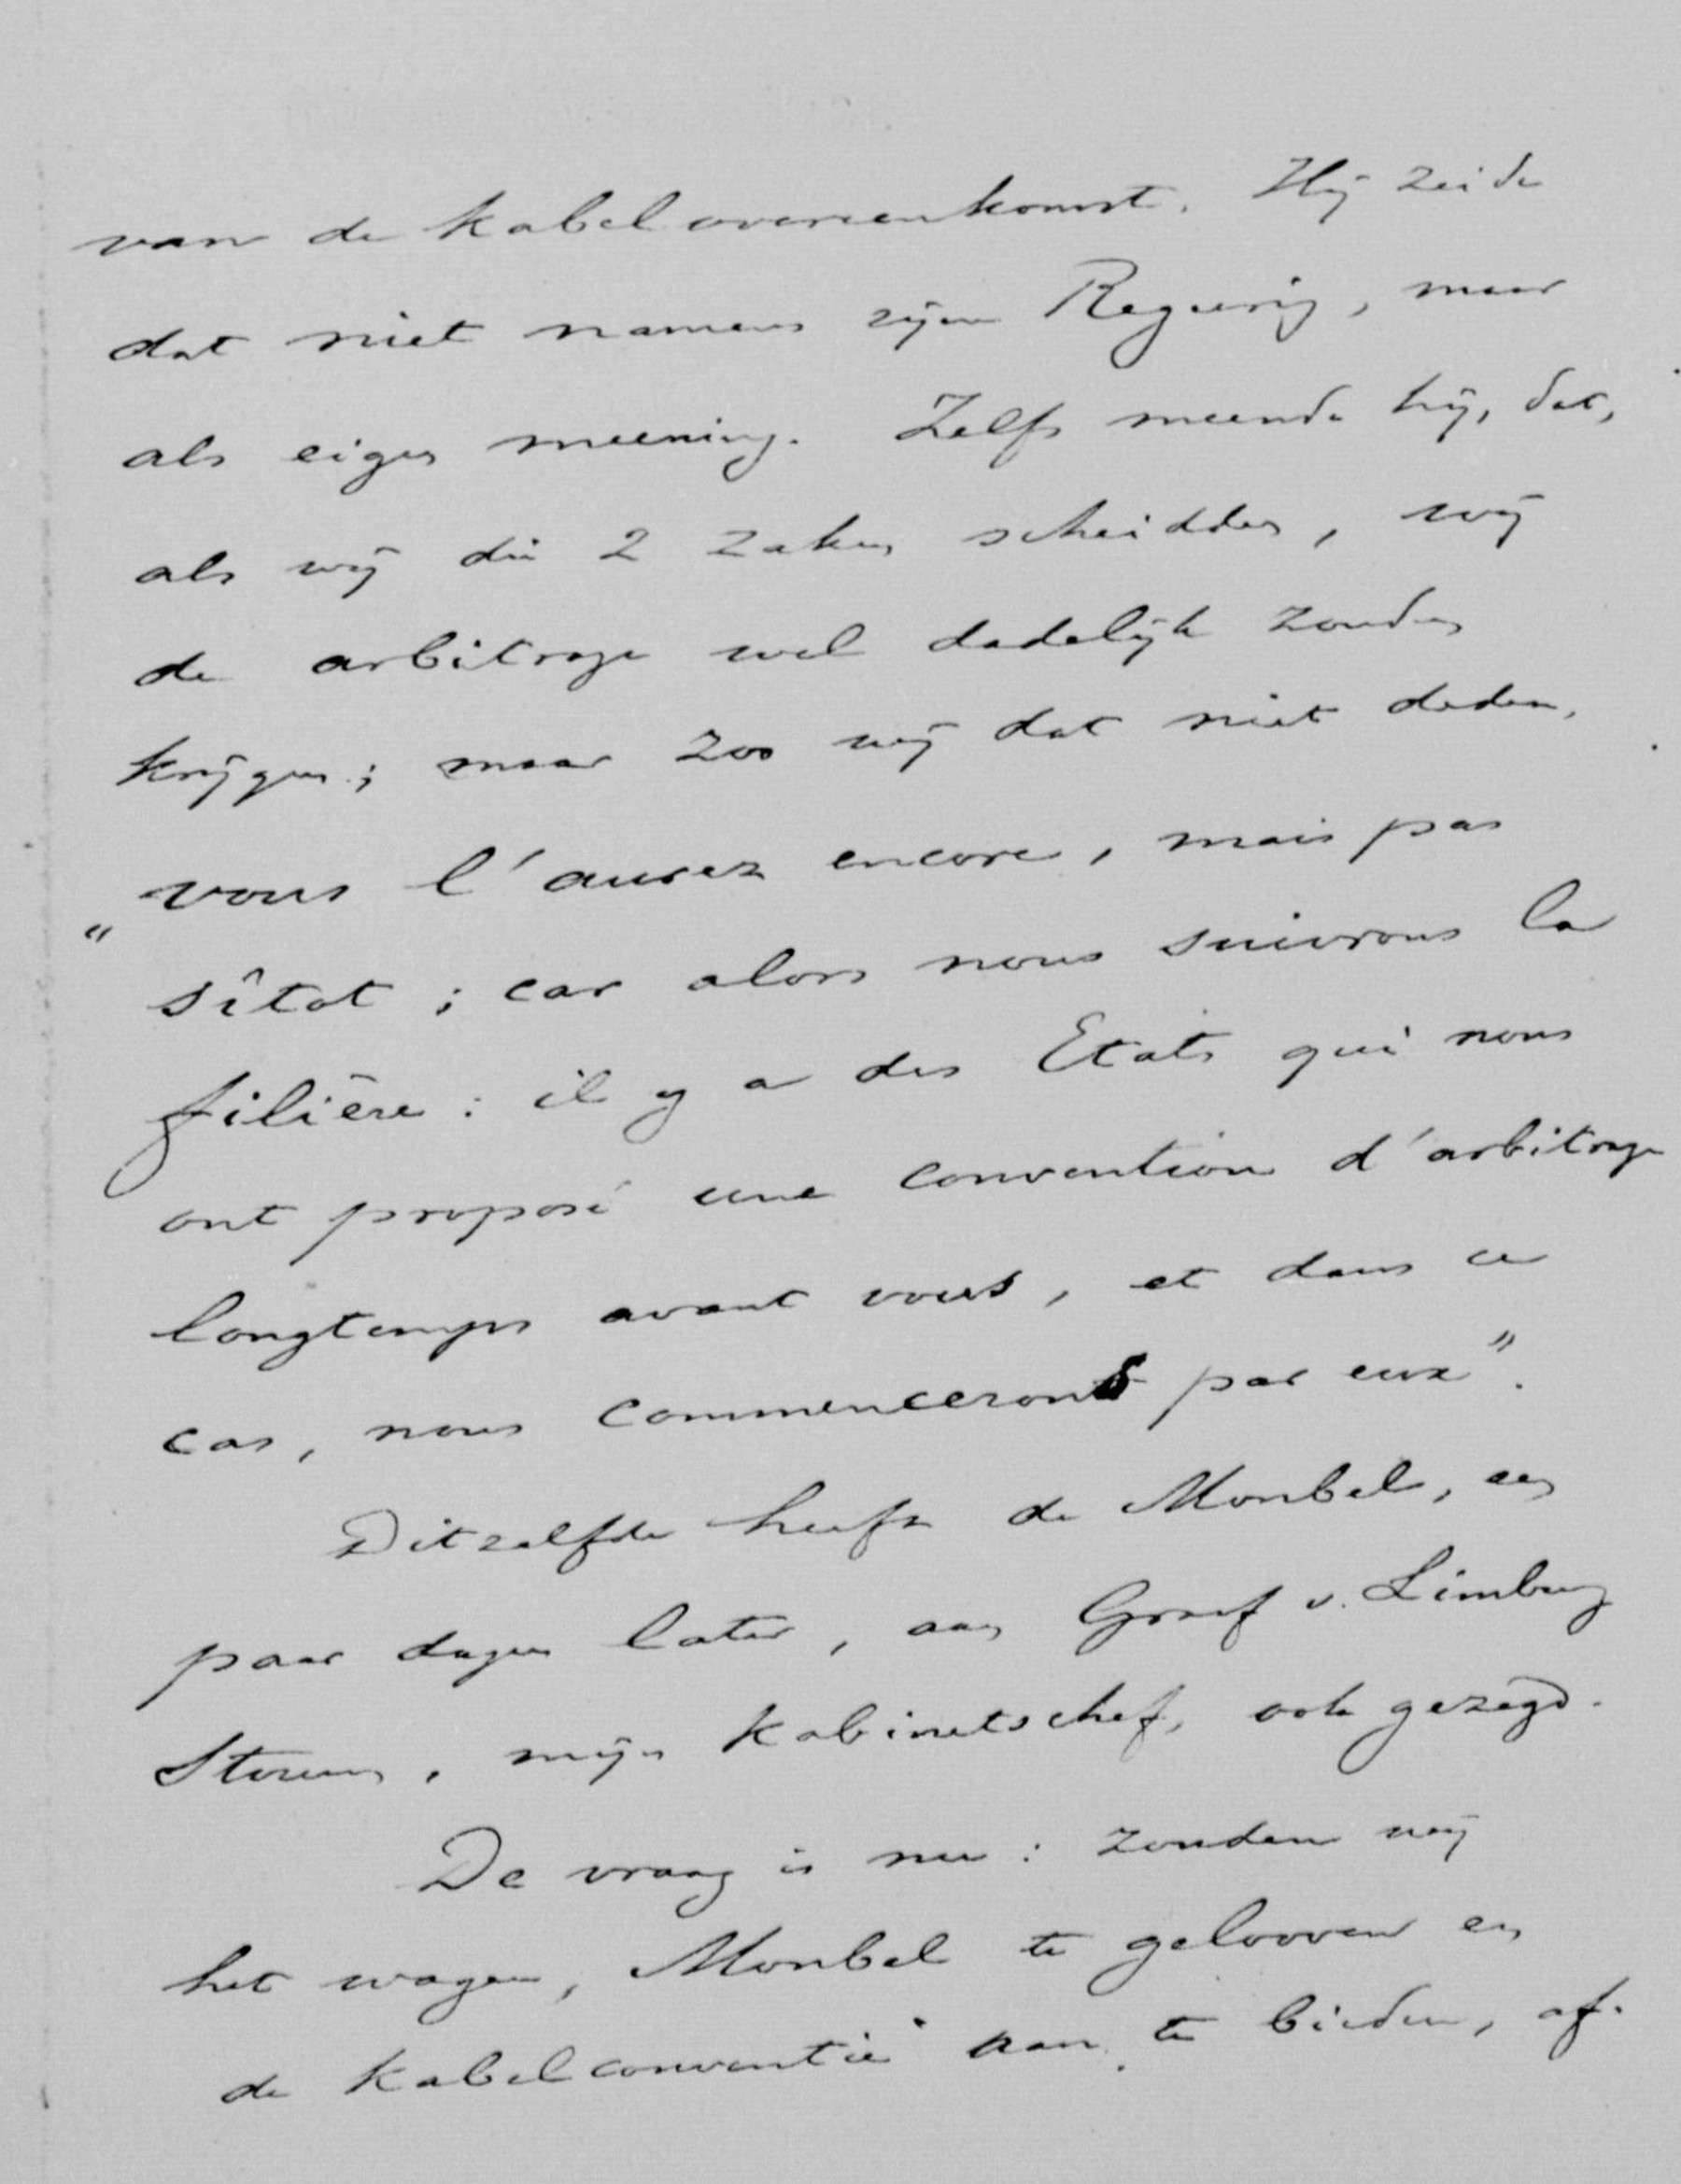 van de kabelovereenkomst. Hij zeide
dat niet namens zijne Regeering, maar
als eigen meening. Zelfs meende hij, dat,
als wij die 2 zaken scheidden, wij
de arbitrage wel dadelijk zouden
krijgen; maar zoo wij dat niet deden,
"vous l'aurez encore, mais pas
sîtot; car alors nous suivrons la
filière: il y a des Etats qui nous
ont proposé une convention d'arbitrage
longtemps avant vous, et dans ce
cas, nous commencerons par eux".
Ditzelfde heeft de Monbel, een
paar dagen later, aan Graaf v. Limburg
Stirum, mijn kabinetschef, ook gezegd.
De vraag is nu: zouden wij
het wagen, Monbel te gelooven en
de kabelconventie aan te bieden, af-